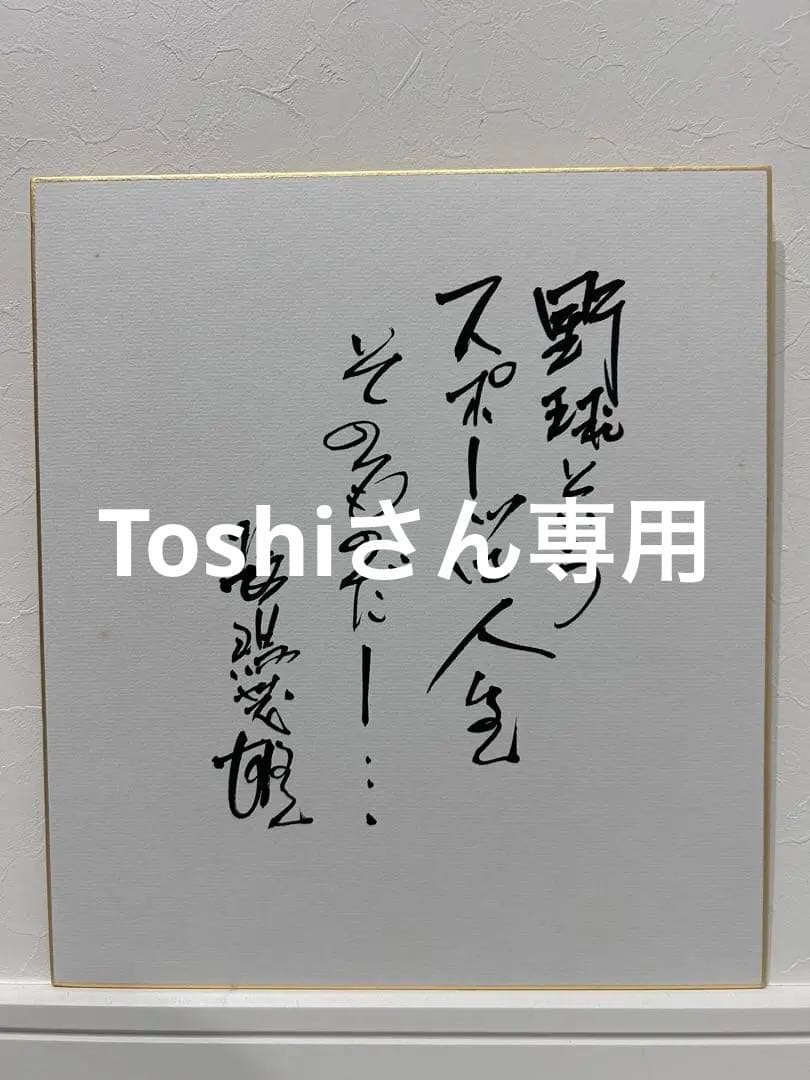 野球という
スポーツは人生
そのものだー…
長嶋茂雄
Toshiさん専用